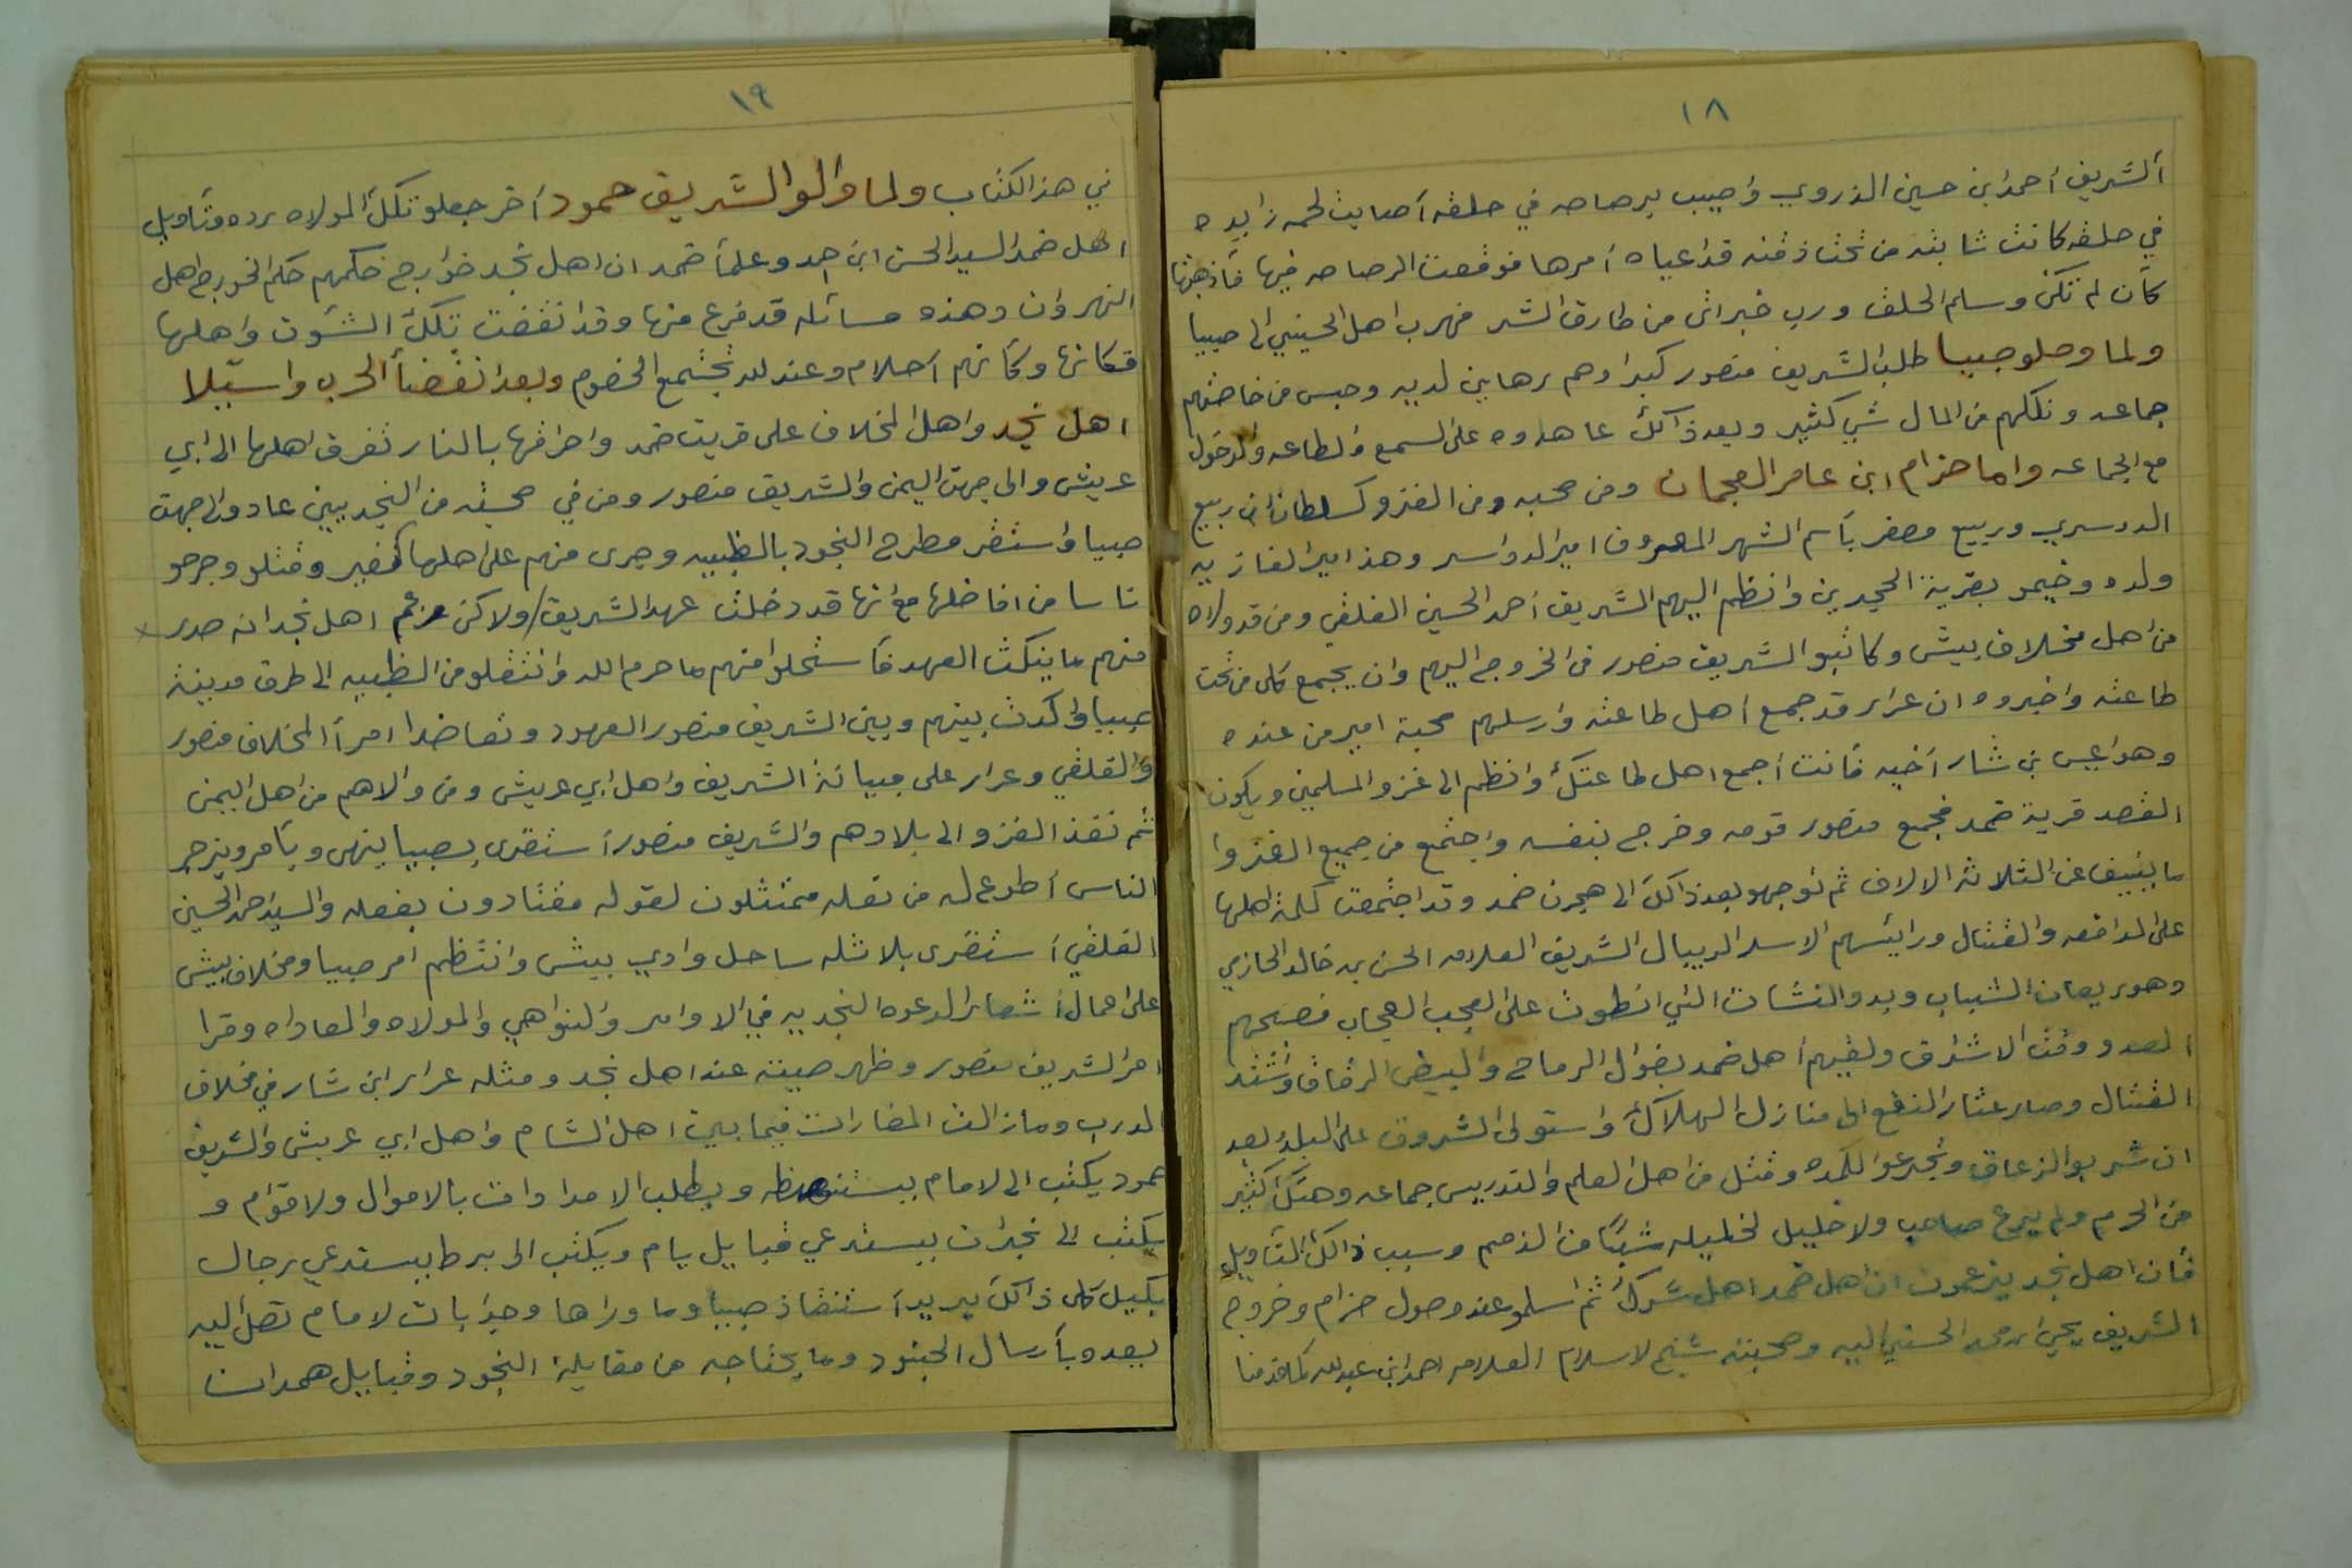 ١٨
الشريف أحمد ابن حسين الذروي وأصيب برصاصه في حلقه أصابت لحمه زايده
في حلقه كانت نابته من تحت ذقنه قد اعياه أمرها فوقعت الرصاصه فيها فأذهبتها
كأن لم تكن وسلم الحلق ورب خير اتى من طارق الشر فهرب اهل الحسيني الى صبيا
ولما وصلو صبيا طلب الشريف منصور كبراوهم رهاين لديه وحبس من خاصتهم
جماعه ونكلهم من المال شي كثير وبعد ذالك عاهدوه على السمع والطاعه والدخول
مع الجماعه واما حزام ابن عامر العجمان ومن صحبه ومن الغزو كسلطان ابن ربيع
الدوسري وربيع مصغر بأسم الشهر المعروف امير الدواسر وهذا امير الغازيه
ولده وخيمو بقرية الحجرين وانظم اليهم الشريف احمد الحسين الفلقي ومن قد والاه
من اهل مخلاف بيش وكاتبو الشريف منصور في الخروج اليهم وان يجمع كل من تحت
طاعته واخبروه ان عرار قد جمع أهل طاعته وارسلهم صحبة امير من عنده
وهو اعيس بن شار أخيه فأنت أجمع اهل طاعتك وانظم الى غزو المسلمين ويكون
القصد قرية ضمد فجمع منصور قومه وخرج بنفسه واجتمع من جميع الغزوا
ما ينيف عن الثلاثة الالاف ثم توجهو بعد ذالك الى هجرت ضمد وقد اجتمعت كلمة اهلها
على المدافعه والقتال ورائيسهم الاسد الريبال الشريف العلامه الحسن بن خالد الحازمي
وهو ريعان الشباب وبدو النشات التي انطوت على العجب العجاب فصبحهم
العدو وقت الاشراق ولقيهم أهل ضمد بضوال الرماح والبيض الرقاق واشتد
القتال وصار عثار النقع الى منازل الهلاك واستولى الشروق على البلد بعد
ان شربو الزعاق وتجرعوا الكمده وقتل من اهل العلم والتدريس جماعه وهتك كثير
من الحرم ولم يرع صاحب ولا خليل لخليله شيئا من الذمم وسبب ذالك التأويل
فأن اهل نجد يزعمون ان أهل ضمد اهل شرك ثم اسلمو عند وصول حزام وخروج
الشريف يحيى ابن محمد الحسني اليه وصحبته شيخ لاسلام العلامه احمد ابن عبدالله كما قدمنا
١٩
في هذ الكتاب ولما والو الشريف حمود أخر جعلو تلك المولاه رده وتأويل
اهل ضمد السيد الحسن ابن احمد وعلمأ ضمد ان اهل نجد خوارج حكمهم حكم الخورج اهل
النهروان وهذه مسائله قد فرغ منها وقد انقضت تلك الشؤن واهلها
فكانها وكأنهم احلام وعند لله تجتمع الخصوم وبعد انقضأ الحرب واستيلا
اهل نجد واهل المخلاف على قريت ضمد واحراقها بالنار تفرق اهلها الى ابي
عريش والى جهت اليمن والشريف منصور ومن في صحبته من النجديين عادو الى جهت
صبيا واستقر مطرح النجود بالظبيه وجرى منهم على اهلها وقتلو وجرحو
ناسا من افاضلها مع انها قد دخلت عهد الشريف / ولاكن زعم اهل نجد انه صدر ×
منهم ما ينكث العهد فأستحلوا منهم ما حرم الله وانتقلو من الظبيه الى طرف مدينة
صبيا واكدث بينهم وبين الشريف منصور العهود وتعاضدا امرأ المخلاف منصور
والفلقي وعرار على مباينة الشريف واهل ابي عريش ومن والاهم من اهل اليمن
ثم نفذ الغزو الى بلادهم والشريف منصور أستقرى بصبيا ينهى ويأمر ويزجر
الناس أطوع له من نعله ممتثلون لقوله مقتادون بفعله والسيد احمد الحسين
الفلقي أستقرى بلاثله ساحل وادي بيش وانتظم امر صبيا ومخلاف بيش
على اعمال أشعار الدعوه النجديه في الاوامر والنواهي والمولاه والمعاداه وقرا
امر الشريف منصور وظهر صيته عند اهل نجد ومثله عرار ابن شار في مخلاف
الدرب ومازالت المضارات فيما بين اهل الشام واهل ابي عريش والشريف
حمود يكتب الى لامام يستنهظه ويطلب الامدادات بالاموال ولاقوام و
يكتب الى نجران يستدعي قبايل يام ويكتب الى برط يستدعي رجال
بكيل كل ذالك يريد أستنقاذ صبيا وما وراها وجوابات لامام تصل اليه
بعده بأرسال الجنود وما يحتاجه من مقابلة النجود وقبايل همدان